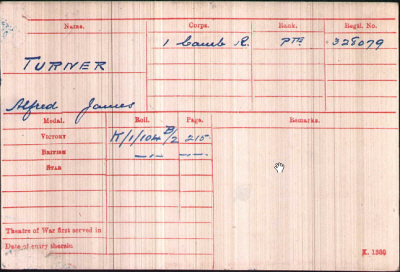 Name. Corps. Rank. Regtl. No.
TURNER 1 Camb R. Pte 328079
Alfred James
Medal. Roll. Page. Remarks.
VICTORY K/1/104 B/2 215
BRITISH —"— —"—
STAR
Theatre of War first served in
Date of entry therein
K. 1380